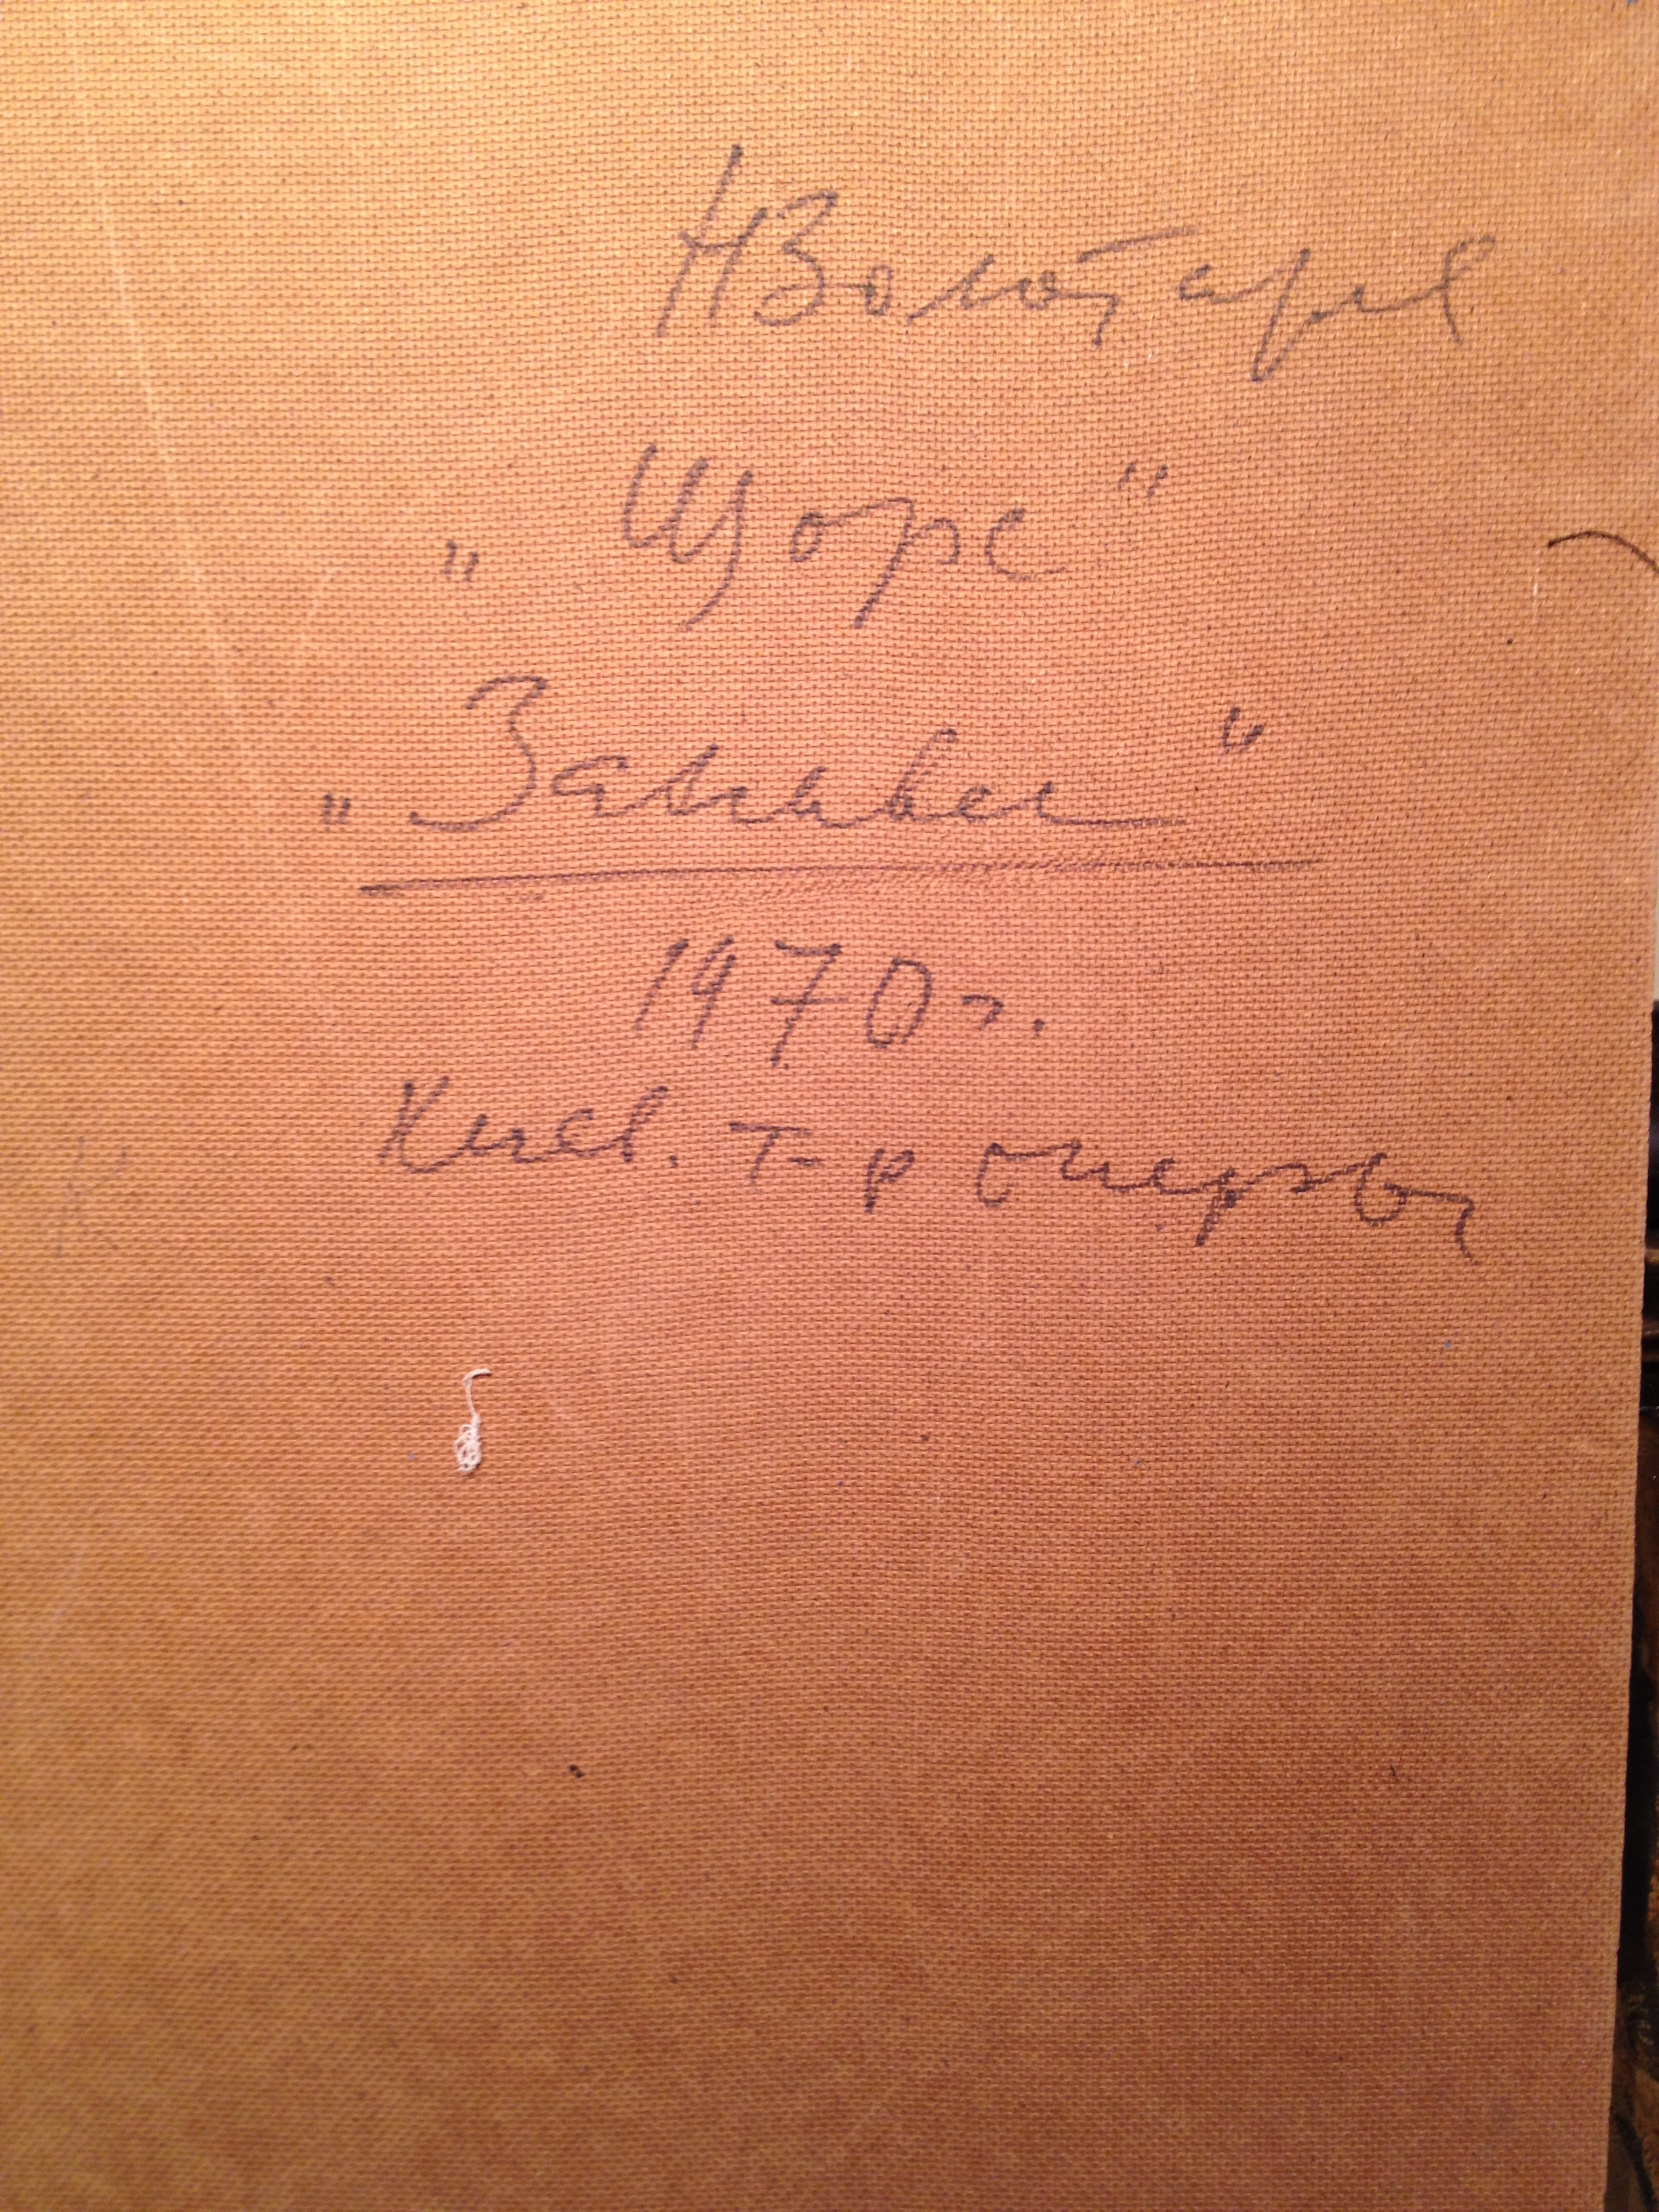 Н Золотарев
„Щорс"
„Занавес"
1970 г.
Киев. т-р оперы